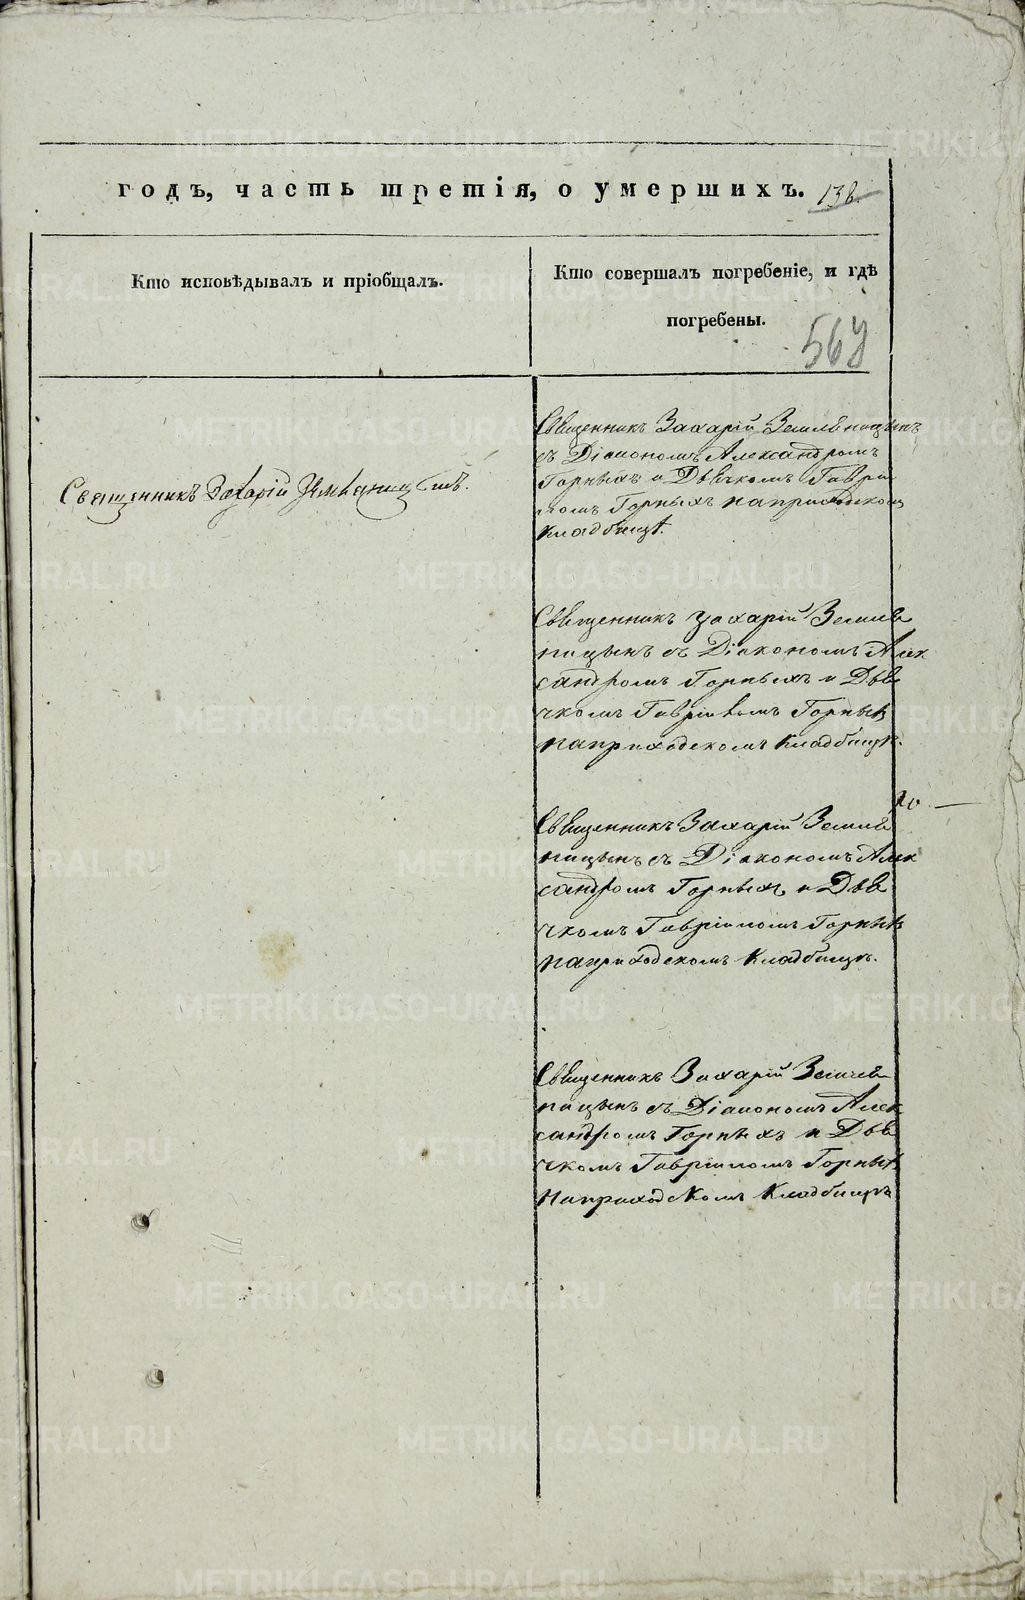 годъ, часть третія, о умершихъ. 138.
Кто исповѣдывалъ и пріобщалъ.
Кто совершалъ погребеніе, и гдѣ
погребены.
Священникъ Захарій Земляницынъ.
Священникъ Захарій Земляницынъ
съ Діакономъ Александромъ
Горныхъ и Дьячкомъ Гаврі
ломъ Горныхъ наприходском
Кладбищѣ.
Священникъ Захарій Земля
ницынъ съ Діакономъ Алек
сандромъ Горныхъ и Дья
чкомъ Горных
наприходскомъ Кладбищѣ.
Священникъ Захарій Земля
ницынъ съ Діакономъ Алек
сандромъ Горныхъ и Дья
чкомъ Гавріиломъ Горных
наприходскомъ Кладбищѣ.
Священникъ Захарій Земля
ницынъ съ Діакономъ Алек
сандромъ Горныхъ и Дья
чкомъ Гавріиломъ Горных
Наприходскомъ Кладбищѣ
METRIKI.GASO-URAL.RU